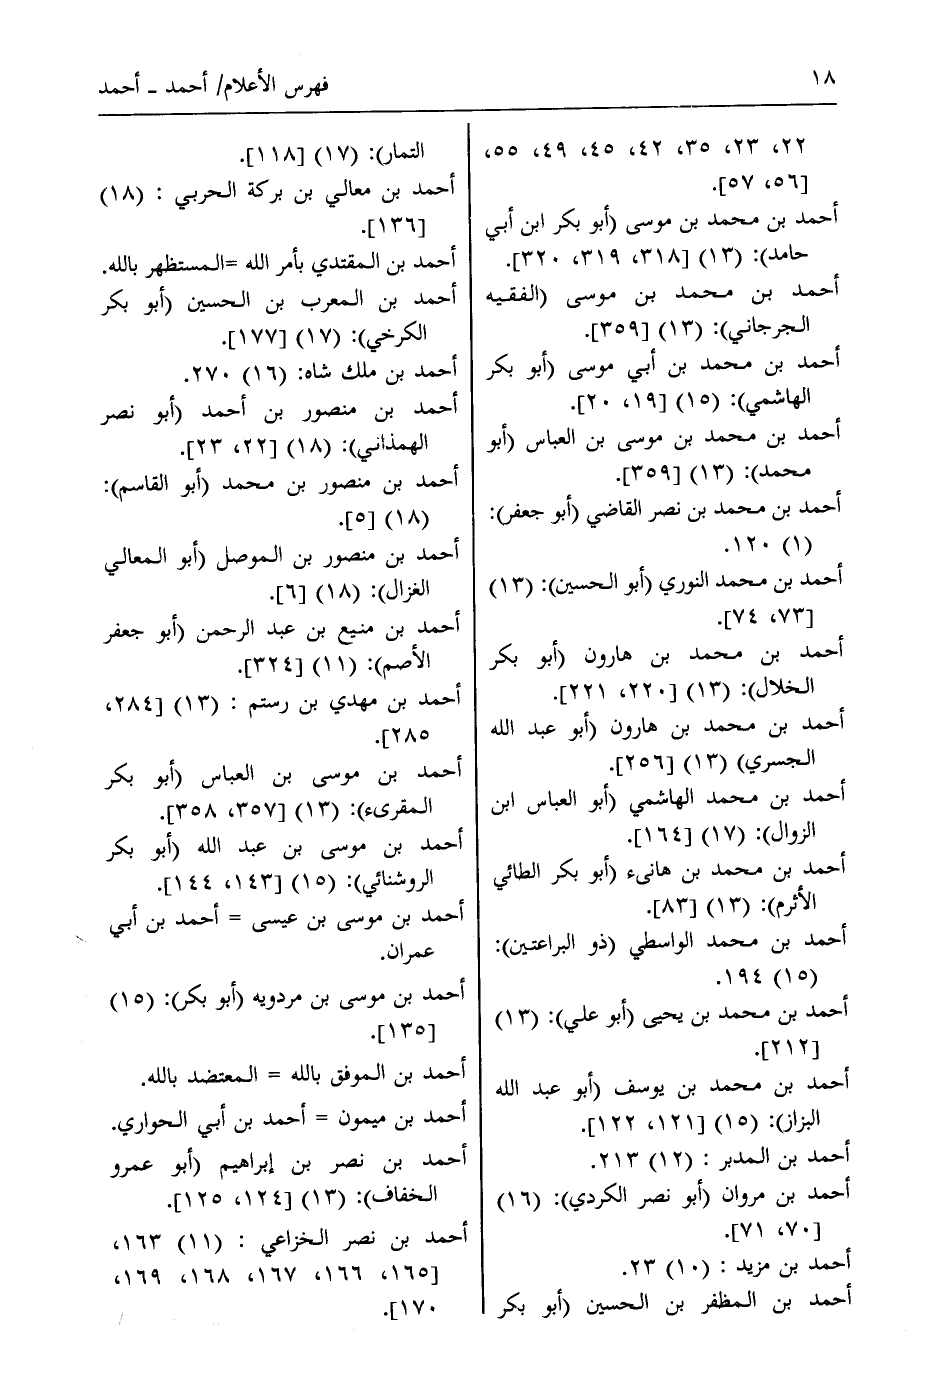 ١٨
فهرس الأعلام/ أحمد ـ أحمد
٢٢، ٢٣، ٣٥، ٤٢، ٤٥، ٤٩، ٥٥،
[٥٦، ٥٧].
أحمد بن محمد بن موسى (أبو بكر ابن أبي
حامد): (١٣) [٣١٨، ٣١٩، ٣٢٠].
أحمد بن محمد بن موسى (الفقيه
الجرجاني): (١٣) [٣٥٩].
أحمد بن محمد بن أبي موسى (أبو بكر
الهاشمي): (١٥) [١٩، ٢٠].
أحمد بن محمد بن موسى بن العباس (أبو
محمد): (١٣) [٣٥٩].
أحمد بن محمد بن نصر القاضي (أبو جعفر):
(١) ١٢٠.
أحمد بن محمد النوري (أبو الحسين): (١٣)
[٧٣، ٧٤].
أحمد بن محمد بن هارون (أبو بكر
الخلال): (١٣) [٢٢٠، ٢٢١].
أحمد بن محمد بن هارون (أبو عبد الله
الجسري) (١٣) [٢٥٦].
أحمد بن محمد الهاشمي (أبو العباس ابن
الزوال): (١٧) [١٦٤].
أحمد بن محمد بن هانىء (أبو بكر الطائي
الأثرم): (١٣) [٨٣].
أحمد بن محمد الواسطي (ذو البراعتين):
(١٥) ١٩٤.
أحمد بن محمد بن يحيى (أبو علي): (١٣)
[٢١٢].
أحمد بن محمد بن يوسف (أبو عبد الله
البزاز): (١٥) [١٢١، ١٢٢].
أحمد بن المدبر : (١٢) ٢١٣.
أحمد بن مروان (أبو نصر الكردي): (١٦)
[٧٠، ٧١].
أحمد بن مزيد : (١٠) ٢٣.
أحمد بن المظفر بن الحسين (أبو بكر
التمار): (١٧) [١١٨].
أحمد بن معالي بن بركة الحربي : (١٨)
[١٣٦].
أحمد بن المقتدي بأمر الله =المستظهر بالله.
أحمد بن المعرب بن الحسين (أبو بكر
الكرخي): (١٧) [١٧٧].
أحمد بن ملك شاه: (١٦) ٢٧٠.
أحمد بن منصور بن أحمد (أبو نصر
الهمذاني): (١٨) [٢٢، ٢٣].
أحمد بن منصور بن محمد (أبو القاسم):
(١٨) [٥].
أحمد بن منصور بن الموصل (أبو المعالي
الغزال): (١٨) [٦].
أحمد بن منيع بن عبد الرحمن (أبو جعفر
الأصم): (١١) [٣٢٤].
أحمد بن مهدي بن رستم : (١٣) [٢٨٤،
٢٨٥].
أحمد بن موسى بن العباس (أبو بكر
المقرىء): (١٣) [٣٥٧، ٣٥٨].
أحمد بن موسى بن عبد الله (أبو بكر
الروشنائي): (١٥) [١٤٣، ١٤٤].
أحمد بن موسى بن عيسى = أحمد بن أبي
عمران.
أحمد بن موسى بن مردويه (أبو بكر): (١٥)
[١٣٥].
أحمد بن الموفق بالله = المعتضد بالله.
أحمد بن ميمون = أحمد بن أبي الحواري.
أحمد بن نصر بن إبراهيم (أبو عمرو
الخفاف): (١٣) [١٢٤، ١٢٥].
أحمد بن نصر الخزاعي : (١١) ١٦٣،
[١٦٥، ١٦٦، ١٦٧، ١٦٨، ١٦٩،
١٧٠].